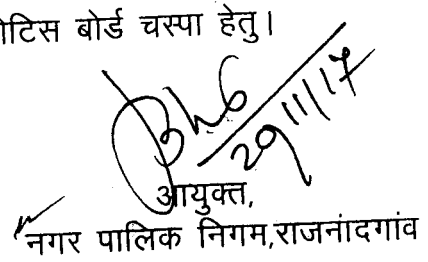 नोटिस बोर्ड चस्पा हेतु।
29/11/17
आयुक्त,
नगर पालिक निगम,राजनांदगांव